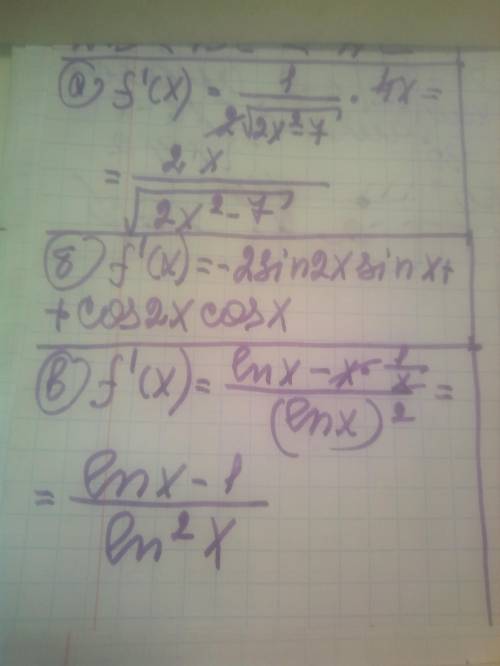 а) f'(x) = 1/(2√(2x²-7)) · 4x =
= 2x/√(2x²-7)
б) f'(x) = -2sin2x sinx+
+ cos2x cosx
в) f'(x) = (lnx - x · 1/x)/(lnx)² =
= (lnx-1)/ln²x